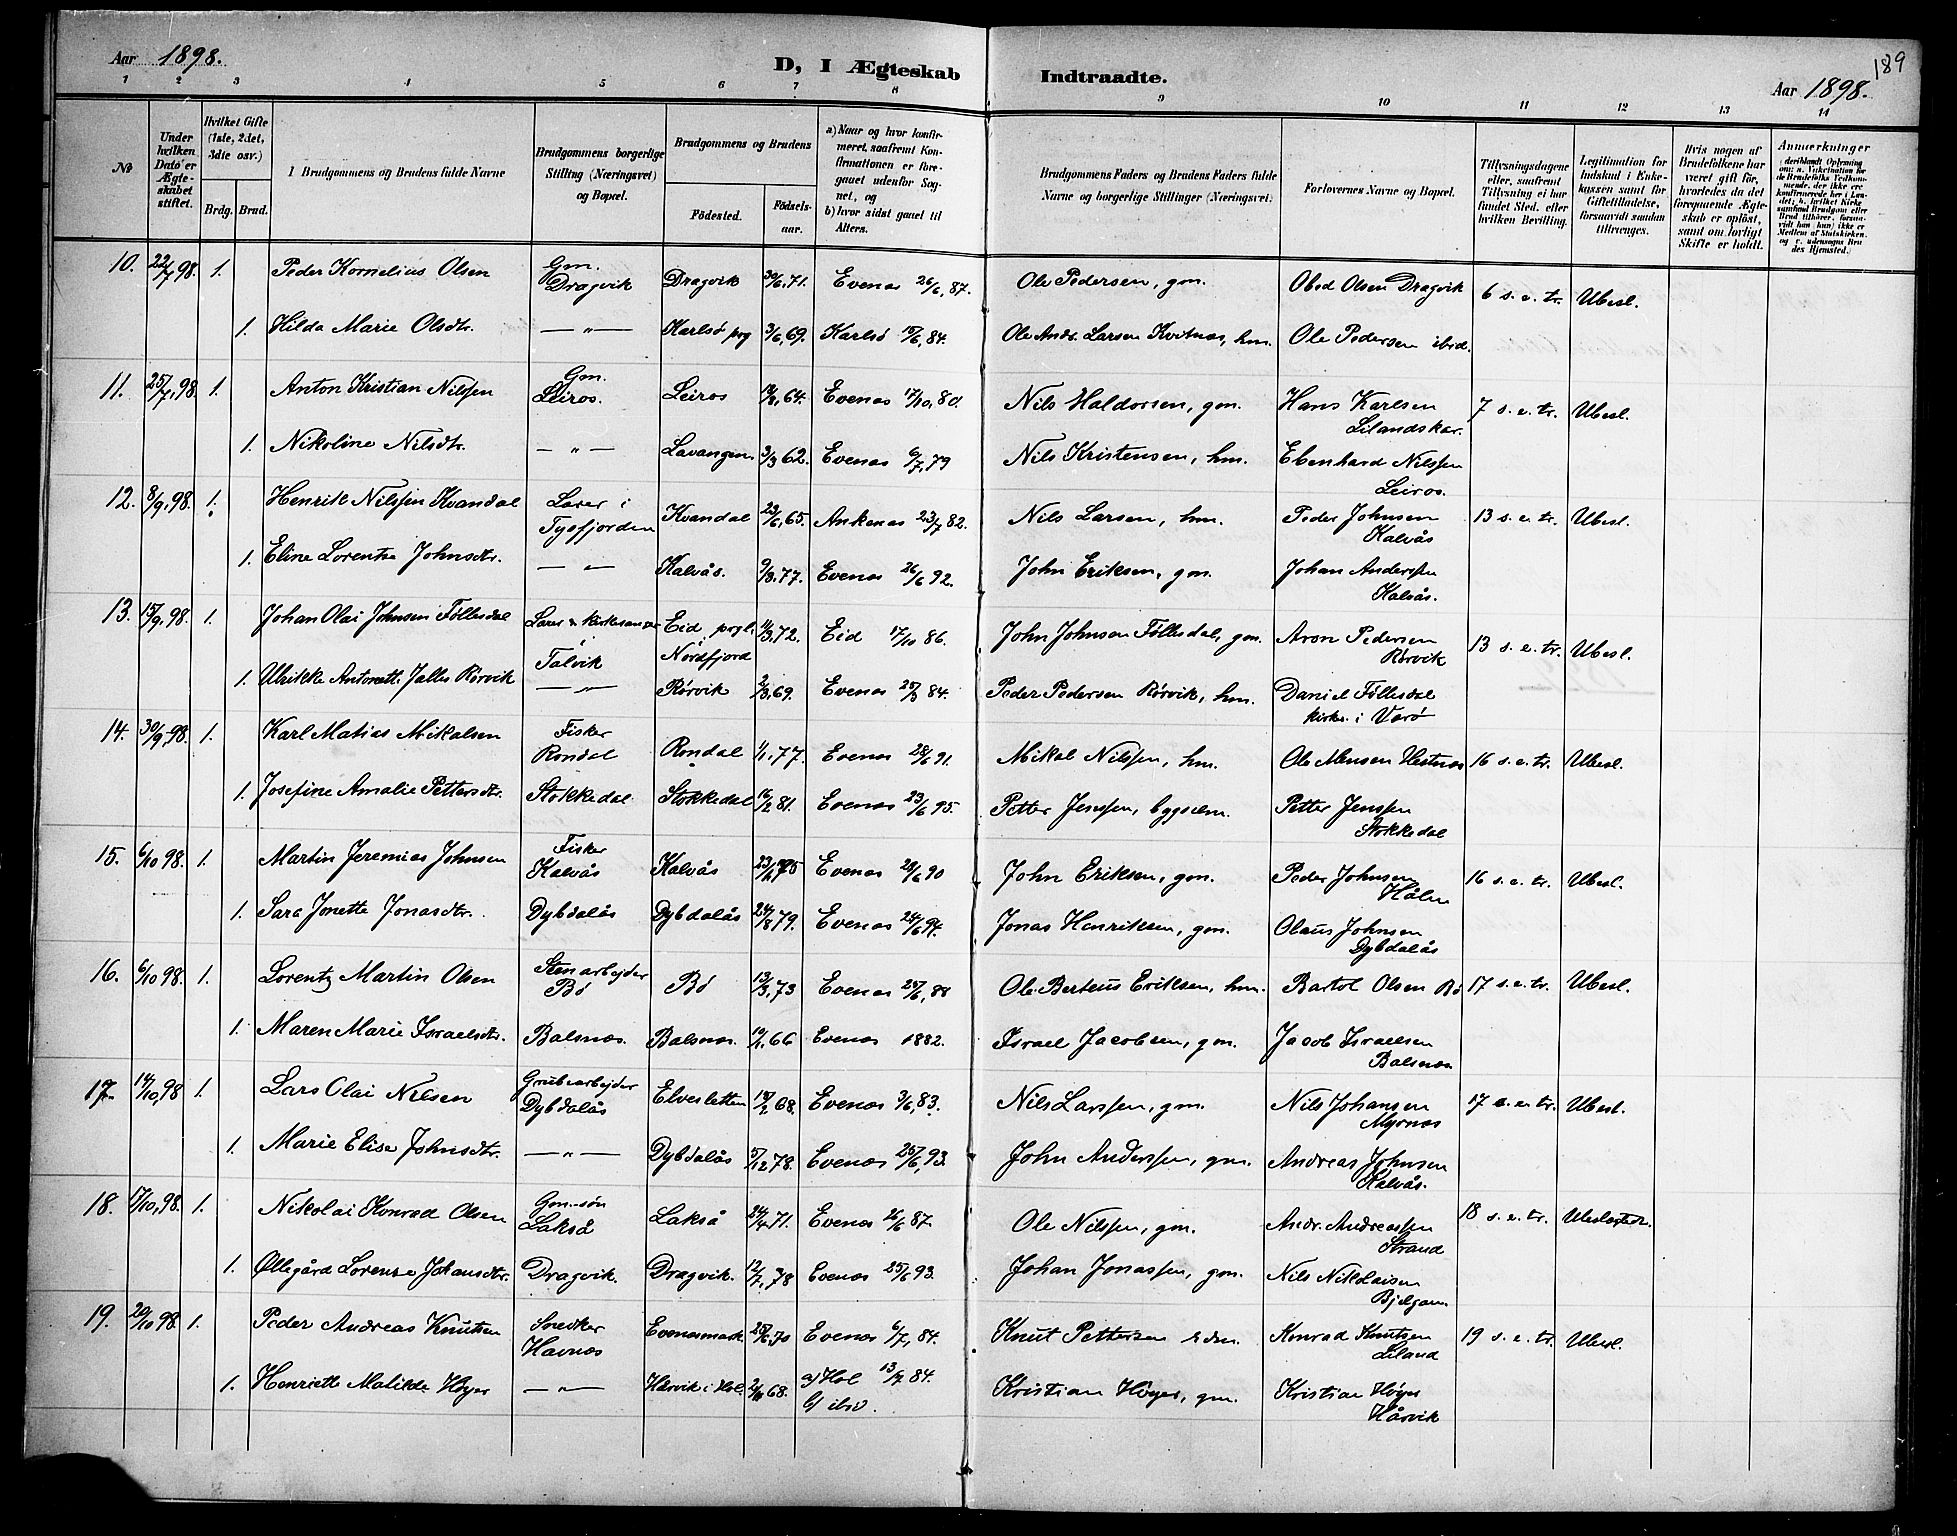 Aar 1898.
D, I Ægteskab Indtraadte.
Aar 1898.
189
1 2 3 4 5 6 7 8 9 10 11 12 13 14
№
Under hvilken Dato er Ægteskabet stiftet.
Hvilket Gifte (1ste, 2det, 3die osv.)
Brdg. Brud.
I Brudgommens og Brudens fulde Navne
Brudgommens borgerlige Stilling (Næringsvei) og Bopæl.
Brudgommens og Brudens
Fødested. Fødselsaar.
a) Naar og hvor konfirmeret, saafremt Konfirmationen er foregaaet udenfor Sognet, og
b) hvor sidst gaaet til Alters.
Brudgommens Faders og Brudens Faders fulde Navne og borgerlige Stillinger (Næringsvei).
Forlovernes Navne og Bopæl.
Tillysningsdagene eller, saafremt Tillysning ei har fundet Sted, efter hvilken Bevilling.
Legitimation for Indskud i Enkekassen samt for Giftetilladelse, forsaavidt saadan tiltrænges.
Hvis nogen af Brudefolkene har været gift før, hvorledes da det foregaaende Ægteskab er opløst, samt om lovligt Skifte er holdt.
Anmærkninger
10. 22/7 98. 1. Peder Kornelius Olsen Gm. Dragvik Dragvik 30/6,71. Evenes 26/6,87. Ole Pedersen, gm. Obed Olsen Dragvik 6 s. e. tr. Ubesl.
1. Hilda Marie Olsdtr. — „ — Karlsö prg 3/6,69. Karlsö 15/6,84. Ole Andr. Larsen Kvitnæs, hm. Ole Pedersen ibid.
11. 25/7,98 1. Anton Kristian Nilssen Gm. Leiros. Leiros 64. Evenes 17/10,80. Nils Haldorsen, gm. Hans Karlsen Lilandskar. 7 s. e. tr. Ubesl.
1. Nikoline Nilsdtr. — „ — Lavangen 3/3 62. Evenes 6/7,79 Nils Kristensen, hm. Ebenhard Nilssen Leiros.
12. 8/9,98. 1. Henrik Nilssen Kvandal Lærer i Tysfjorden Kvandal 23/6,65. Ankenes 23/7 82. Nils Larsen, hm. Peder Johnsen Kalvås 13 s. e. tr. Ubesl.
1. Eline Lorentze Johnsdtr. — „ — Kalvås. 9/3.77. Evenes 26/6 92. John Eriksen, gm. Johan Anderssen Kalvås.
13. 15/9,98. 1. Johan Olai Johnsen Føllesdal Lærer & kirkesanger i Talvik Eid prgl. Nordfjord 11/3,72. Eid 17/10 86. John Johnsen Føllesdal, gm. Aron Pedersen Rørvik 13 s. e. tr. Ubesl.
1. Ulrikke Antonette Jalles Rørvik — „ — Rørvik 2/3,69. Evenes 25/5 84. Peder Pedersen Rørvik, hm. Daniel Føllesdal kirkes. i Værö
14. 30/9,98. 1. Karl Matias Mikalsen Fisker Rondal Rondal 1/1,77. Evenes 28/6 91. Mikal Nilssen, hm. Ole Monsen Hestnes 16 s. e. tr. Ubesl.
1. Josefine Amalie Pettersdtr. Stokkedal. Stokkedal 16/2 81. Evenes 23/6 95. Petter Jenssen, bygselm. Petter Jenssen Stokkedal
15. 6/10 98. 1. Martin Jeremias Johnsen Fisker Kalvås Kalvås 75 Evenes 29/6 90 John Eriksen, gm. Peder Johnsen 16 s. e. tr. Ubesl.
1. Sara Jonette Jonasdtr. Dybdalås Dybdalås 24/8 79. Evenes 24/6 94. Jonas Henriksen, gm. Olaus Johnsen Dybdalås
16. 6/10 98. 1. Lorentz Martin Olsen Stenarbejder Bö Bö 13/3,73 Evenes 88 Ole Berteus Eriksen, hm. Bartol Olsen Bö 17 s. e. tr. Ubesl.
1. Maren Marie Israelsdtr. Balsnæs. Balsnæs. 66 Evenes 1882. Israel Jacobsen, gm. Jacob Israelsen Balsnæs
17. 14/10,98 1. Lars Olai Nilsen Grubearbejder Dybdalås Elvesletten 68. Evenes 3/6,83. Nils Larssen, gm. Nils Johansen Myrnæs 17 s. e. tr. Ubesl.
1. Marie Elise Johnsdtr. — „ — Dybdalås 5/12 78. Evenes 25/6,93. John Anderssen, gm. Andreas Johnsen Kalvås.
18. 17/10,98. 1. Nikolai Konrad Olsen Gm.-søn Lakså Lakså 24/4 71. Evenes 26/6 87. Ole Nilssen, gm. Andr. Andreassen Strand 18 s. e. tr.
1. Øllegård Lorense Johansdtr. Dragvik. Dragvik. 12/7,78 Evenes 25/6 93. Johan Jonassen, gm. Nils Nikolaisen
19. 20/10 98. 1. Peder Andreas Knutsen Snedker Havnæs Evenesmark 25/6,70 Evenes 6/7,84. Knut Pettersen Konrad Knutsen Liland 19 s. e. tr. Ubesl.
1. Henriette Matilde Höyer — „ — Hårvik i Hol 68. a) Hol 13/7 84. b) ibid. Kristian Höyer, gm. Kristian Höyer Hårvik